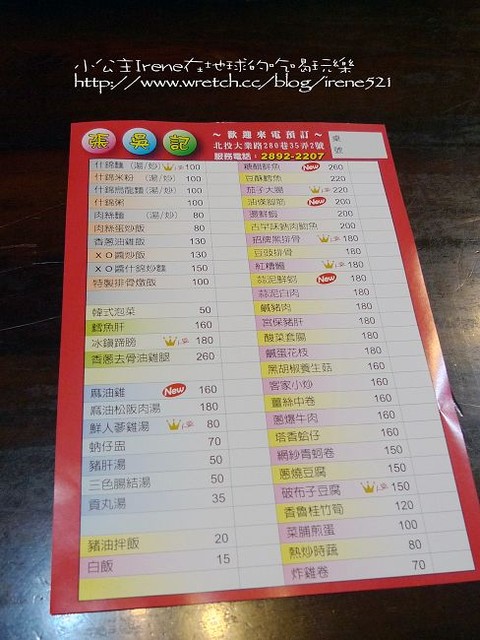 小公主Irene在地球的吃喝玩樂
http://www.wretch.cc/blog/irene521
張吳記
～歡迎來電預訂～
北投大業路280巷35弄2號
服務電話：2892-2207
桌號
什錦麵 (湯/炒) 100
什錦米粉 (湯/炒) 100
什錦烏龍麵(湯/炒) 100
什錦粥 100
肉絲麵 (湯/炒) 80
肉絲蛋炒飯 80
香蔥油雞飯 130
XO醬炒飯 130
XO醬什錦炒麵 150
特製排骨燉飯 100
韓式泡菜 50
鱈魚肝 160
冰鎮蹄膀 180
香蔥去骨油雞腿 260
麻油雞 New 160
麻油松阪肉湯 180
鮮人蔘雞湯 80
蚋仔盅 70
豬肝湯 50
三色腸結湯 50
貢丸湯 35
豬油拌飯 20
白飯 15
糖醋鮮魚 New 260
豆酥鱈魚 220
茄子大腸 220
油條腳筋 New 200
燙鮮蝦 200
古早味魩魚 200
招牌黑排骨 180
豆豉排骨 180
紅糟鰻 180
蒜泥鮮蚵 New 180
蒜泥白肉 180
鹹豬肉 180
宮保豬肝 180
酸菜套腸 180
鹹蛋花枝 180
黑胡椒養生菇 160
客家小炒 160
薑絲中卷 160
蔥爆牛肉 160
塔香蛤仔 160
網紗青蚵卷 150
蔥燒豆腐 150
破布子豆腐 150
香魯桂竹筍 120
菜脯煎蛋 100
熱炒時蔬 80
炸雞卷 70